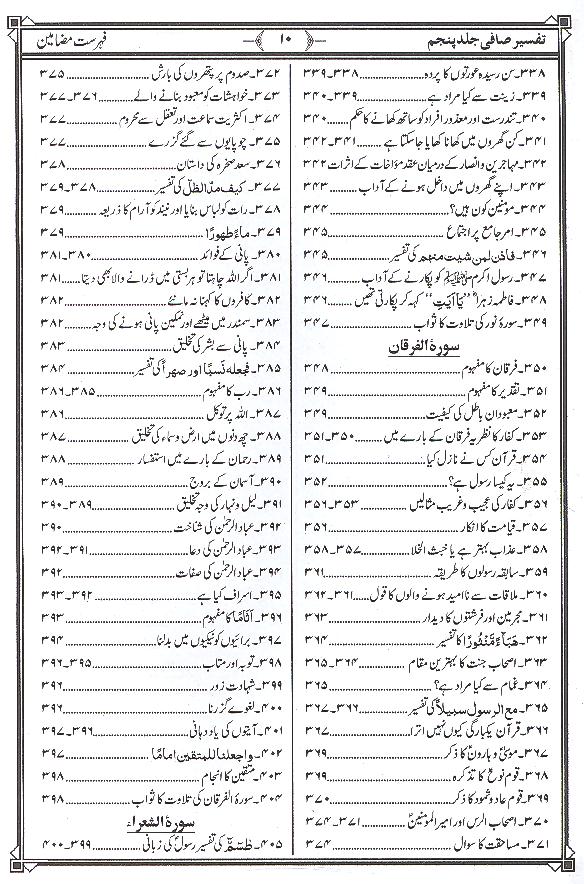 تفسیر صافی جلد پنجم
۱۰
فہرست مضامین
۳۳۸۔سن رسیدہ عورتوں کا پردہ ۳۳۸۔۳۳۹
۳۳۹۔زینت سے کیا مراد ہے ۳۳۹۔۳۴۰
۳۴۰۔تندرست اور معذور افراد کو ساتھ کھانے کا حکم ۳۴۰
۳۴۱۔کن گھروں میں کھانا کھایا جا سکتا ہے ۳۴۱۔۳۴۲
۳۴۲۔مہاجرین و انصار کے درمیان عقد مؤاخات کے اثرات ۳۴۲
۳۴۳۔اپنے گھروں میں داخل ہونے کے آداب ۳۴۳
۳۴۴۔مومنین کون ہیں؟ ۳۴۴
۳۴۵۔امر جامع پر اجتماع ۳۴۵
۳۴۶۔فاذن لمن شئت منھم کی تفسیر ۳۴۵
۳۴۷۔رسول اکرم ﷺ کو پکارنے کے آداب ۳۴۶
۳۴۸۔فاطمہ زہراؑ ”یَا اَبَتِ“ کہہ کر پکارتی تھیں ۳۴۶
۳۴۹۔سورۂ نور کی تلاوت کا ثواب ۳۴۷
سورة الفرقان
۳۵۰۔فرقان کا مفہوم ۳۴۸
۳۵۱۔تقدیر کا مفہوم ۳۴۹
۳۵۲۔معبودان باطل کی کیفیت ۳۴۹
۳۵۳۔کفار کا نظریہ فرقان کے بارے میں ۳۵۰۔۳۵۱
۳۵۴۔قرآن کس نے نازل کیا: ۳۵۱
۳۵۵۔یہ کیسا رسول ہے؟ ۳۵۲
۳۵۶۔کفار کی عجیب و غریب مثالیں ۳۵۳۔۳۵۶
۳۵۷۔قیامت کا انکار ۳۵۶
۳۵۸۔عذاب بہتر ہے یا جنت الخلد ۳۵۷۔۳۵۸
۳۵۹۔سابقہ رسولوں کا طریقہ ۳۶۱
۳۶۰۔ملاقات سے ناامید ہونے والوں کا قول ۳۶۱۔۳۶۲
۳۶۱۔مجرمین اور فرشتوں کا دیدار ۳۶۳
۳۶۲۔هَبَآءً مَّنْثُورًا کا تفسیر ۳۶۴
۳۶۳۔اصحاب جنت کا بہترین مقام ۳۶۴۔۳۶۵
۳۶۴۔غمام سے کیا مراد ہے؟ ۳۶۵
۳۶۵۔مع الرسول سبیلاً کی تفسیر ۳۶۶۔۳۶۷
۳۶۶۔قرآن یکبارگی کیوں نہیں اترا ۳۶۷
۳۶۷۔موسیٰؑ و ہارونؑ کا ذکر ۳۶۹
۳۶۸۔قوم نوحؑ کا تذکرہ ۳۶۹
۳۶۹۔قوم عاد و ثمود کا ذکر ۳۷۰
۳۷۰۔اصحاب الرس اور امیر المومنینؑ ۳۷۱۔۳۷۴
۳۷۱۔مساحقت کا سوال ۳۷۴
۳۷۲۔صدوم پر پتھروں کی بارش ۳۷۵
۳۷۳۔خواہشات کو معبود بنانے والے ۳۷۶۔۳۷۷
۳۷۴۔اکثریت سماعت اور تعقل سے محروم ۳۷۷
۳۷۵۔چوپایوں سے گئے گزرے ۳۷۷
۳۷۶۔سعد صخرہ کی داستان ۳۷۸
۳۷۷۔کیف مدّ الظل کی تفسیر ۳۷۸۔۳۷۹
۳۷۸۔رات کو لباس بنایا اور نیند کو آرام کا ذریعہ ۳۷۹
۳۷۹۔ماءً طھورًا ۳۷۹
۳۸۰۔پانی کے فوائد ۳۸۰۔۳۸۱
۳۸۱۔اگر اللہ چاہتا تو ہر بستی میں ڈرانے والا بھی دیتا ۳۸۱
۳۸۲۔کافروں کا کہنا نہ مانئے ۳۸۲
۳۸۳۔سمندر میں میٹھے اور نمکین پانی ہونے کی وجہ ۳۸۲
۳۸۴۔پانی سے بشر کی تخلیق ۳۸۳
۳۸۵۔فجعله نسبًا اور صھرًا کی تفسیر ۳۸۴
۳۸۶۔رب کا مفہوم ۳۸۵۔۳۸۶
۳۸۷۔اللہ پر توکل ۳۸۶
۳۸۸۔چھ دنوں میں ارض و سماء کی تخلیق ۳۸۷
۳۸۹۔رحمان کے بارے میں استفسار ۳۸۸
۳۹۰۔آسمان کے بروج ۳۸۹
۳۹۱۔لیل و نہار کی وجہ تخلیق ۳۸۹۔۳۹۰
۳۹۲۔عباد الرحمٰن کی شناخت ۳۹۰
۳۹۳۔عباد الرحمٰن کی دعا ۳۹۱۔۳۹۲
۳۹۴۔عباد الرحمٰن کی صفات ۳۹۲
۳۹۵۔اسراف کیا ہے ۳۹۲۔۳۹۳
۳۹۶۔اَثَامًا کا مفہوم ۳۹۳
۳۹۷۔برائیوں کو نیکیوں میں بدلنا ۳۹۴
۳۹۸۔توبہ اور متاب ۳۹۵۔۳۹۶
۳۹۹۔شہادت زور ۳۹۶
۴۰۰۔لغو سے گزرنا ۳۹۶
۴۰۱۔آیتوں کی یاد دہانی ۳۹۶۔۳۹۷
۴۰۲۔واجعلنا للمتقین امامًا ۳۹۷
۴۰۳۔متقین کا انجام ۳۹۸
۴۰۴۔سورۂ الفرقان کی تلاوت کا ثواب ۳۹۸
سورة الشعراء
۴۰۵۔طٰسٓمّٓ کی تفسیر رسولؐ کی زبانی ۳۹۹۔۴۰۰